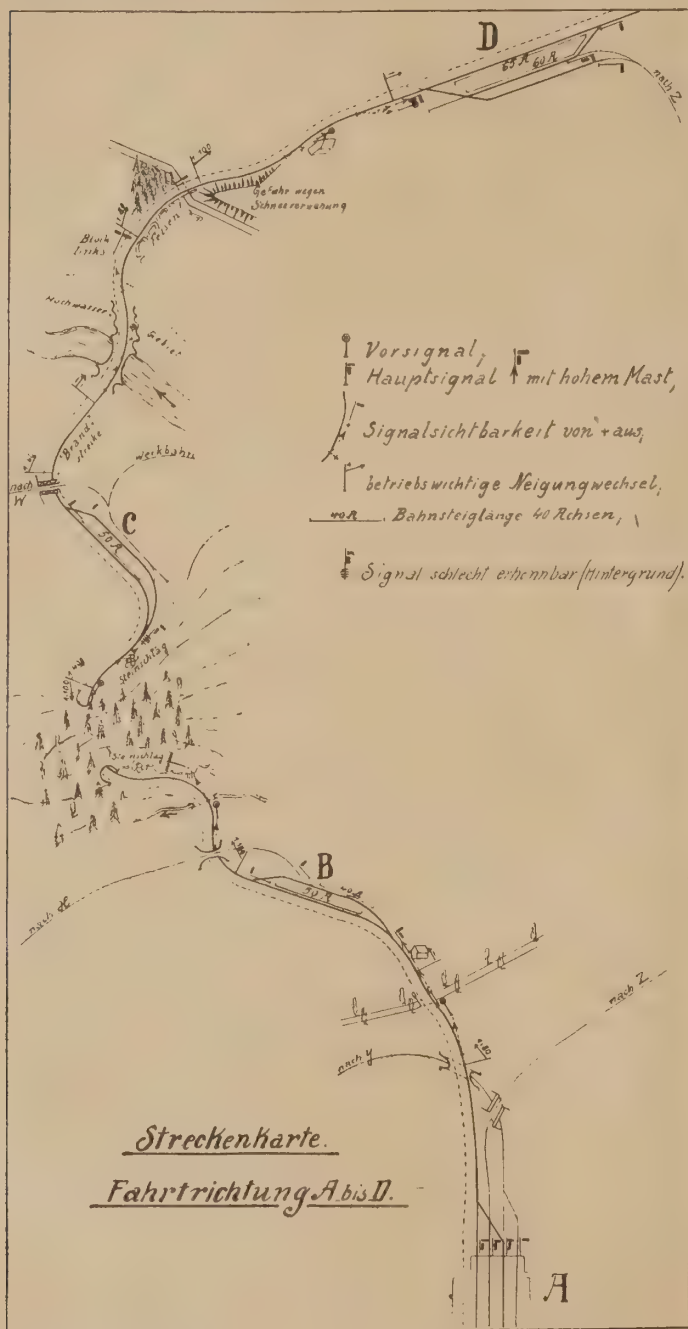 D
65 A 60 A
nach Z
1:100
Gefahr wegen
Schneeverwehung
Felsen
Block
links
Hochwasser
Gebiet
Brand-
strecke
nach
W
Werkbahn
C
50 A
Steinschlag
1:100
Steinschlag
B
40 A
50 A
nach
nach Z
1:80
nach Y
Vorsignal,
Hauptsignal mit hohem Mast,
Signalsichtbarkeit von + aus,
betriebswichtige Neigungwechsel,
40 A Bahnsteiglänge 40 Achsen,
Signal schlecht erkennbar (Hintergrund).
Streckenkarte.
Fahrtrichtung A bis D.
A